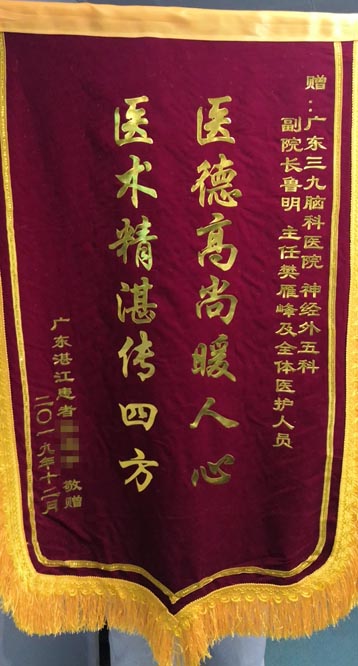 赠：广东三九脑科医院 神经外五科
副院长鲁明 主任樊雁峰及全体医护人员
医德高尚暖人心
医术精湛传四方
广东湛江患者 敬赠
二〇一九年十二月